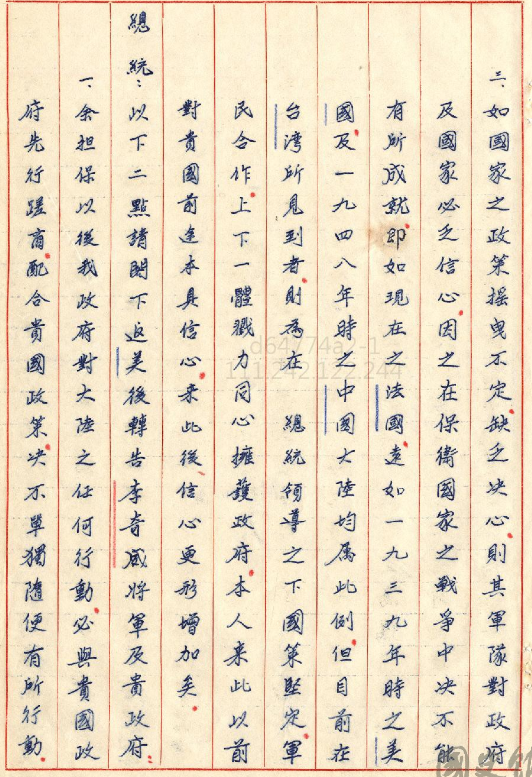 三、如國家之政策摇曳不定。缺乏决心。則其軍隊對政府
及國家必乏信心。因之在保衛國家之戰爭中决不能
有所成就。即如現在之法國。遠如一九三九年時之美
國。及一九四八年時之中國大陸均属此例。但目前在
台灣所見到者。則為在　總統領導之下國策堅定。軍
民合作。上下一體戮力同心擁護政府。本人来此以前
對貴國前途本具信心。来此後信心更形增加矣。
總統：以下二點請閣下返美後轉告李奇威將軍及貴政府：
一、余担保以後我政府對大陸之任何行動。必與貴國政
府先行蹉商。配合貴國政策。决不單獨隨便有所行動。
d64774a2-1
111.242.122.244